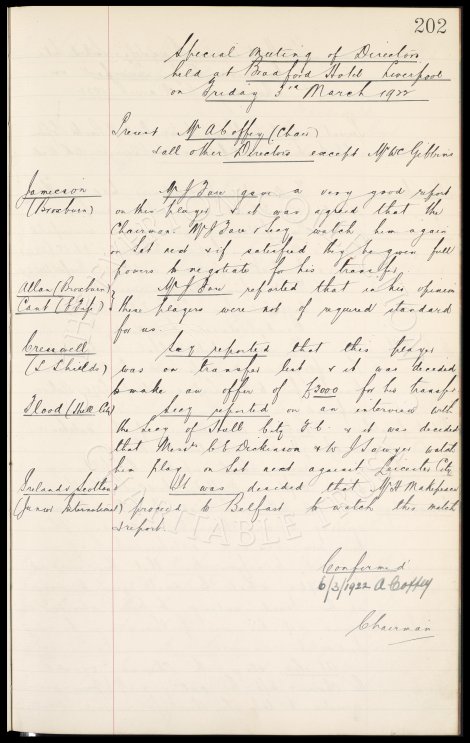 202
Special Meeting of Directors
held at Bradford Hotel Liverpool
on Friday 3rd March 1922
Present Mr A Coffey (Chair)
& all other Directors except Mr W C Gibbins
Jamieson Mr J Fare gave a very good report
(Broxburn) on this player & it was agreed that the
Chairman Mr J Fare & Secy watch him again
on Sat next & if satisfied they be given full
powers to negotiate for his transfer
Allan (Broxburn) Mr J Fare reported that in his opinion
Cant (E Fife) these players were not of required standard
for us.
Cresswell Secy reported that this player
(S Shields) was on transfer list & it was decided
to make an offer of £3000 for his transfer
Flood (Hull City) Secy reported on an interview with
the Secy of Hull City F.C. & it was decided
that Messrs C E Dickinson & W J Sawyer watch
him play on Sat next against Leicester City
Ireland v Scotland It was decided that Mr H Makepeace
(Junior International) proceed to Belfast to watch this match
& report.
Confirmed
6/3/1922 A Coffey
Chairman